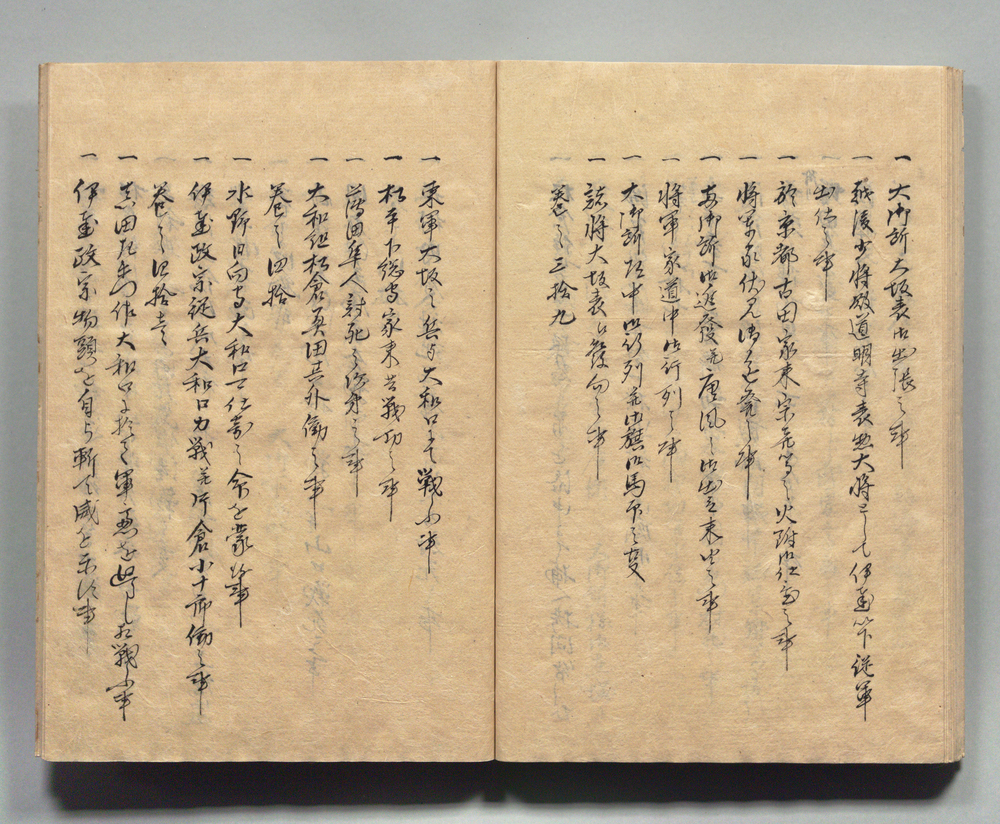 一 大御所大坂表御出張之事
一 越後少将殿道明寺表惣大将として伊達等従軍
出仕之事
一 於京都古田家来宗喜等火附御仕置之事
一 将軍家伏見御進発之事
一 両御所御進發并唐風之御出立来由之事
一 将軍家道中御行列之事
一 大御所路中御行列并御旗御馬印之叓
一 諸将大坂表江發向之事
巻之三拾九
一 東軍大坂之兵与大和口ニて戦ふ事
一 松平下総守家来苦戦功之事
一 薄田隼人討死之事
一 大和組松倉奥田其外働之事
巻之四拾
一 水野日向守大和口仕寄之命を蒙事
一 伊達政宗従兵大和口力戦并片倉小十郎働之事
巻之四拾壱
一 真田左衛門佐大和口に於て軍要を得し相戦ふ事
一 伊達政宗物頭を自ら斬て威を示す事